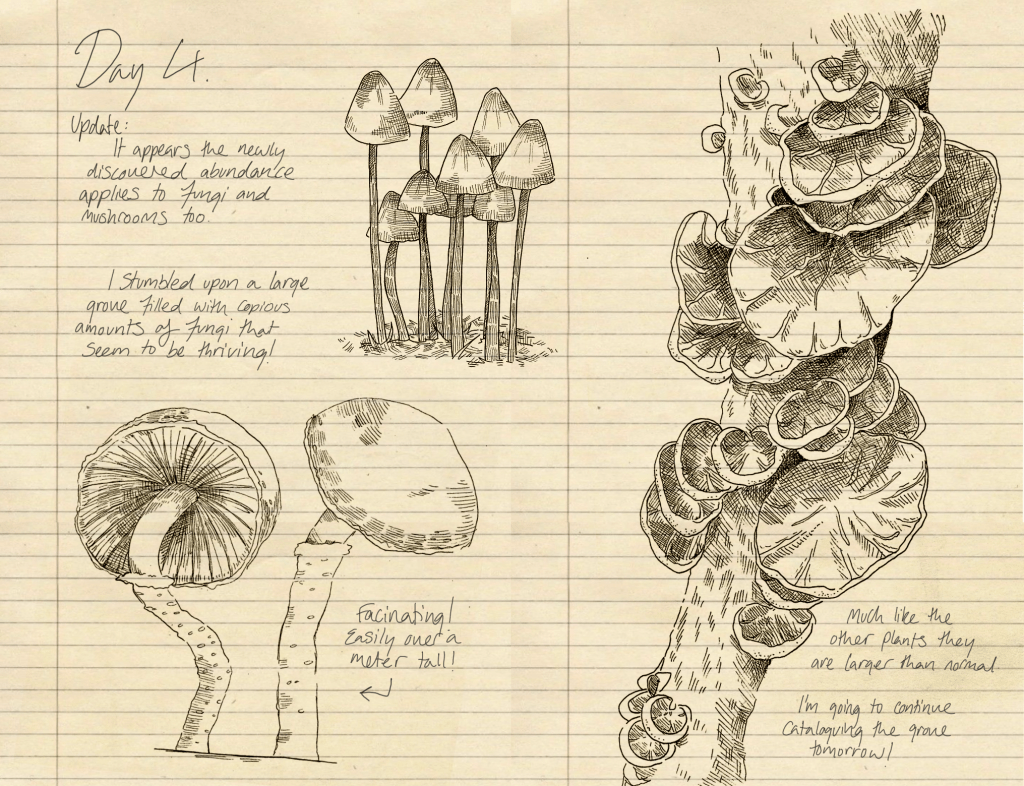 Day 4.
Update:
It appears the newly
discovered abundance
applies to fungi and
mushrooms too.
I stumbled upon a large
grove filled with copious
amounts of fungi that
seem to be thriving!
Facinating!
Easily over a
meter tall!
Much like the
other plants they
are larger than normal.
I'm going to continue
cataloguing the grove
tomorrow!